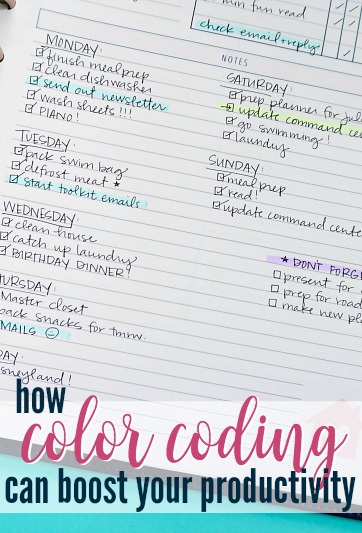 min fun read
check email+reply
NOTES
MONDAY:
finish meal prep
clean dishwasher
send out newsletter
wash sheets !!!
PIANO!
TUESDAY:
pack swim bag
defrost meat ★
start toolkit emails
WEDNESDAY:
clean house
catch up laundry
BIRTHDAY DINNER!
URSDAY:
Master closet
pack snacks for tmrw.
MAILS ☺
DAY:
sneyland!
SATURDAY:
prep planner for jul
update command ce
go swimming!
laundry
SUNDAY:
meal prep
read!
update command cente
★ DONT FORG
present for
prep for road
make new pl
how
color coding
can boost your productivity